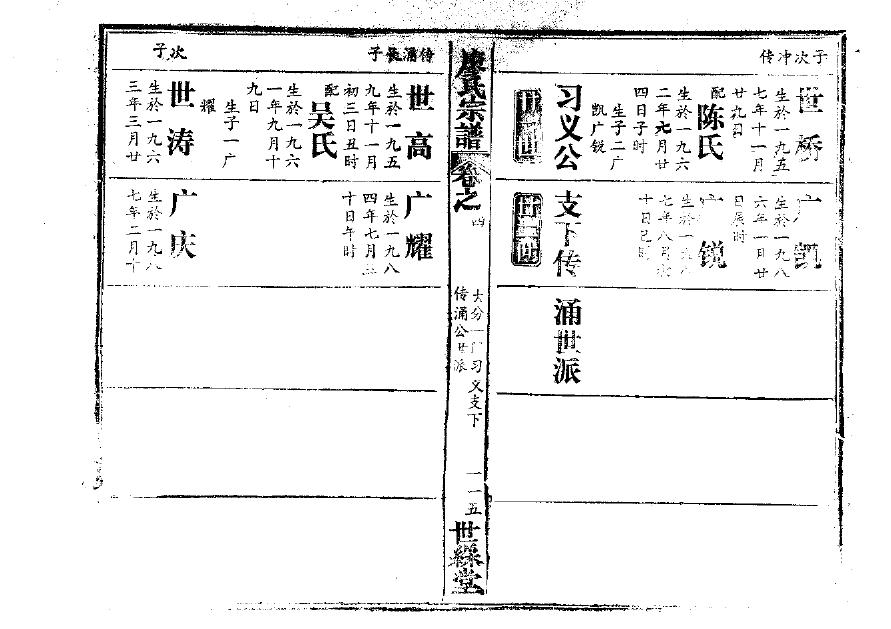 传冲次子
世桥
生於一九五
七年十一月
廿九日
配陈氏
生於一九六
二年六月廿
四日子时
生子二广
凯广锐
广凯
生於一九八
六年一月廿
日辰时
广锐
生於一九八
七年八月
十日巳时
习义公支下传涌世派
廖氏宗譜
卷之四
大分一门习义支下
传涌公世派
一一五
世綵堂
传涌長子
世高
生於一九五
九年十一月
初三日丑时
配吴氏
生於一九六
一年九月十
九日
生子一广
耀
广耀
生於一九八
四年七月三
十日午时
次子
世涛
生於一九六
三年三月廿
广庆
生於一九八
七年二月十